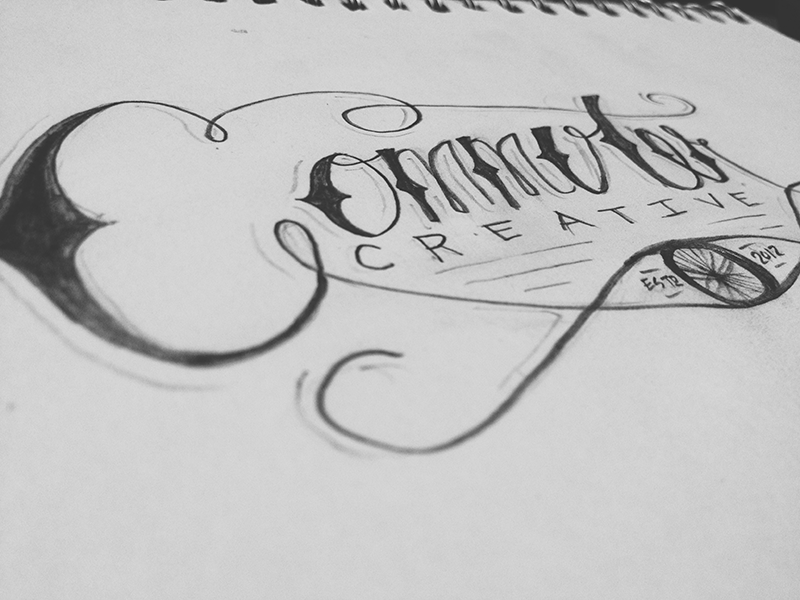 Commuter
CREATIVE
ESTD 2012